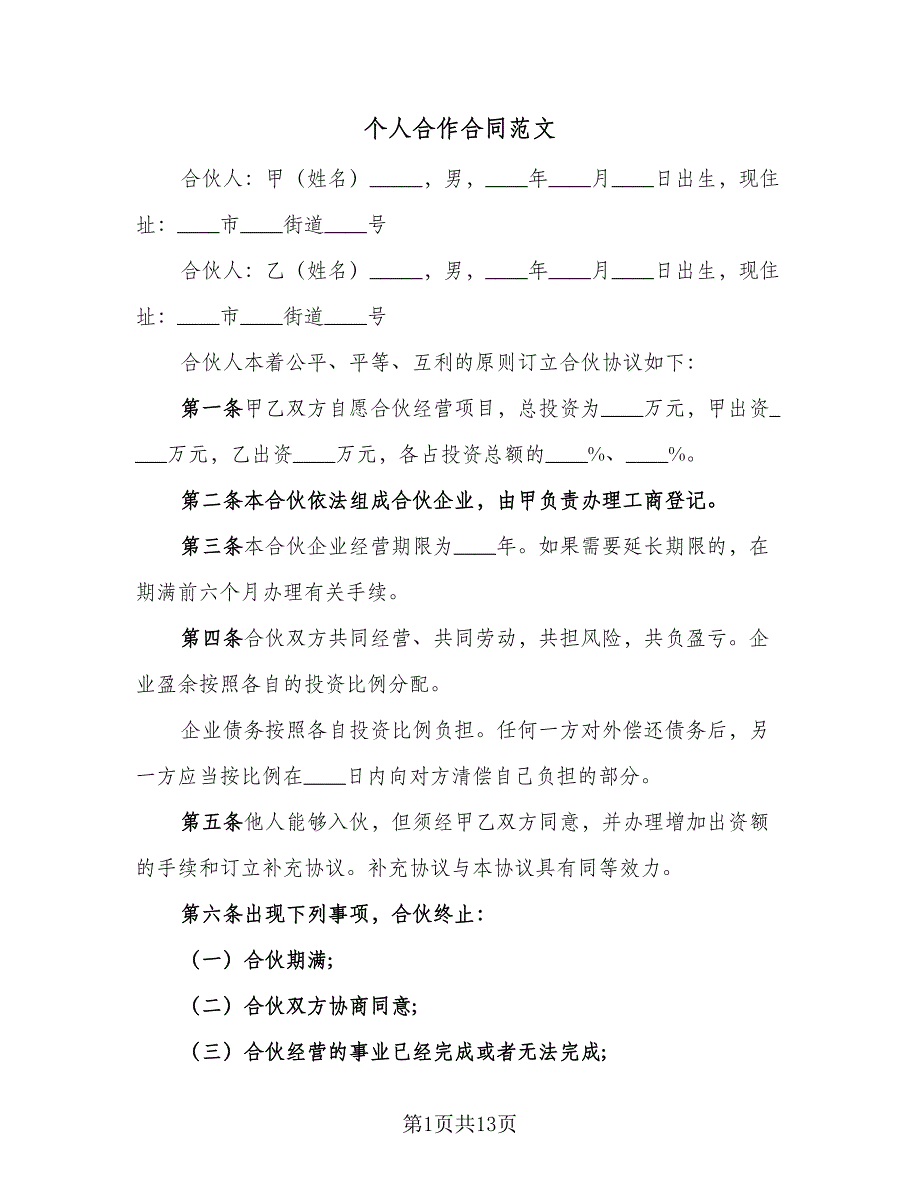 个人合作合同范文
合伙人：甲（姓名）_____，男，____年____月____日出生，现住
址：____市____街道____号
合伙人：乙（姓名）_____，男，____年____月____日出生，现住
址：____市____街道____号
合伙人本着公平、平等、互利的原则订立合伙协议如下：
第一条甲乙双方自愿合伙经营项目，总投资为____万元，甲出资_
___万元，乙出资____万元，各占投资总额的____%、____%。
第二条本合伙依法组成合伙企业，由甲负责办理工商登记。
第三条本合伙企业经营期限为____年。如果需要延长期限的，在
期满前六个月办理有关手续。
第四条合伙双方共同经营、共同劳动，共担风险，共负盈亏。企
业盈余按照各自的投资比例分配。
企业债务按照各自投资比例负担。任何一方对外偿还债务后，另
一方应当按比例在____日内向对方清偿自己负担的部分。
第五条他人能够入伙，但须经甲乙双方同意，并办理增加出资额
的手续和订立补充协议。补充协议与本协议具有同等效力。
第六条出现下列事项，合伙终止：
（一）合伙期满;
（二）合伙双方协商同意;
（三）合伙经营的事业已经完成或者无法完成;
第1页共13页